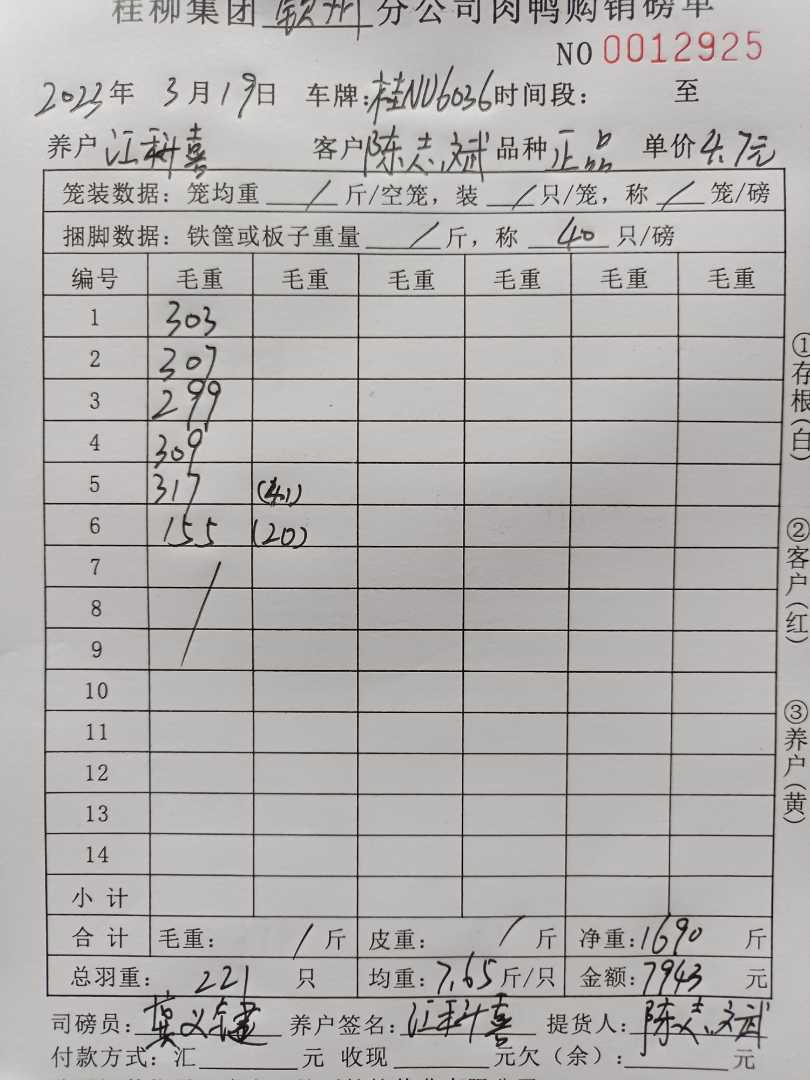 桂柳集团 钦州 分公司肉鸭购销磅单
NO 0012925
2023年 3月19日 车牌:桂NU6036 时间段: 至
养户 江科喜 客户 陈志斌 品种 正品 单价 4.7元
笼装数据:笼均重 / 斤/空笼,装 / 只/笼,称 / 笼/磅
捆脚数据:铁筐或板子重量 / 斤,称 40 只/磅
编号 毛重 毛重 毛重 毛重 毛重 毛重
1 303
2 307
3 299
4 309
5 317 (41)
6 155 (20)
7 /
8
9
10
11
12
13
14
小计
合计 毛重: / 斤 皮重: / 斤 净重:1690 斤
总羽重: 221 只 均重:7.65斤/只 金额:7943 元
司磅员: 养户签名:江科喜 提货人:陈志斌
付款方式:汇 元 收现 元欠(余): 元
①存根(白)
②客户(红)
③养户(黄)